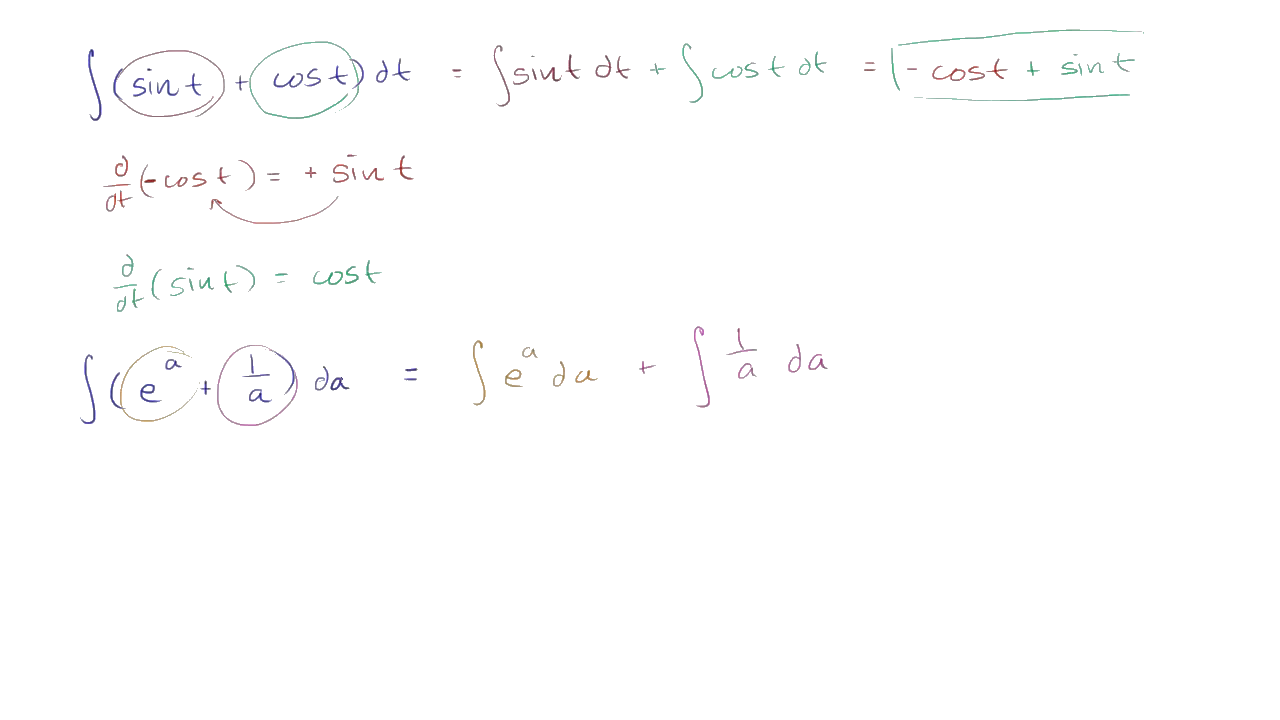 ∫(sin t + cos t) dt = ∫sin t dt + ∫cos t dt = - cos t + sin t
d/dt (-cos t) = + sin t
d/dt (sin t) = cos t
∫(e^a + 1/a) da = ∫e^a da + ∫1/a da